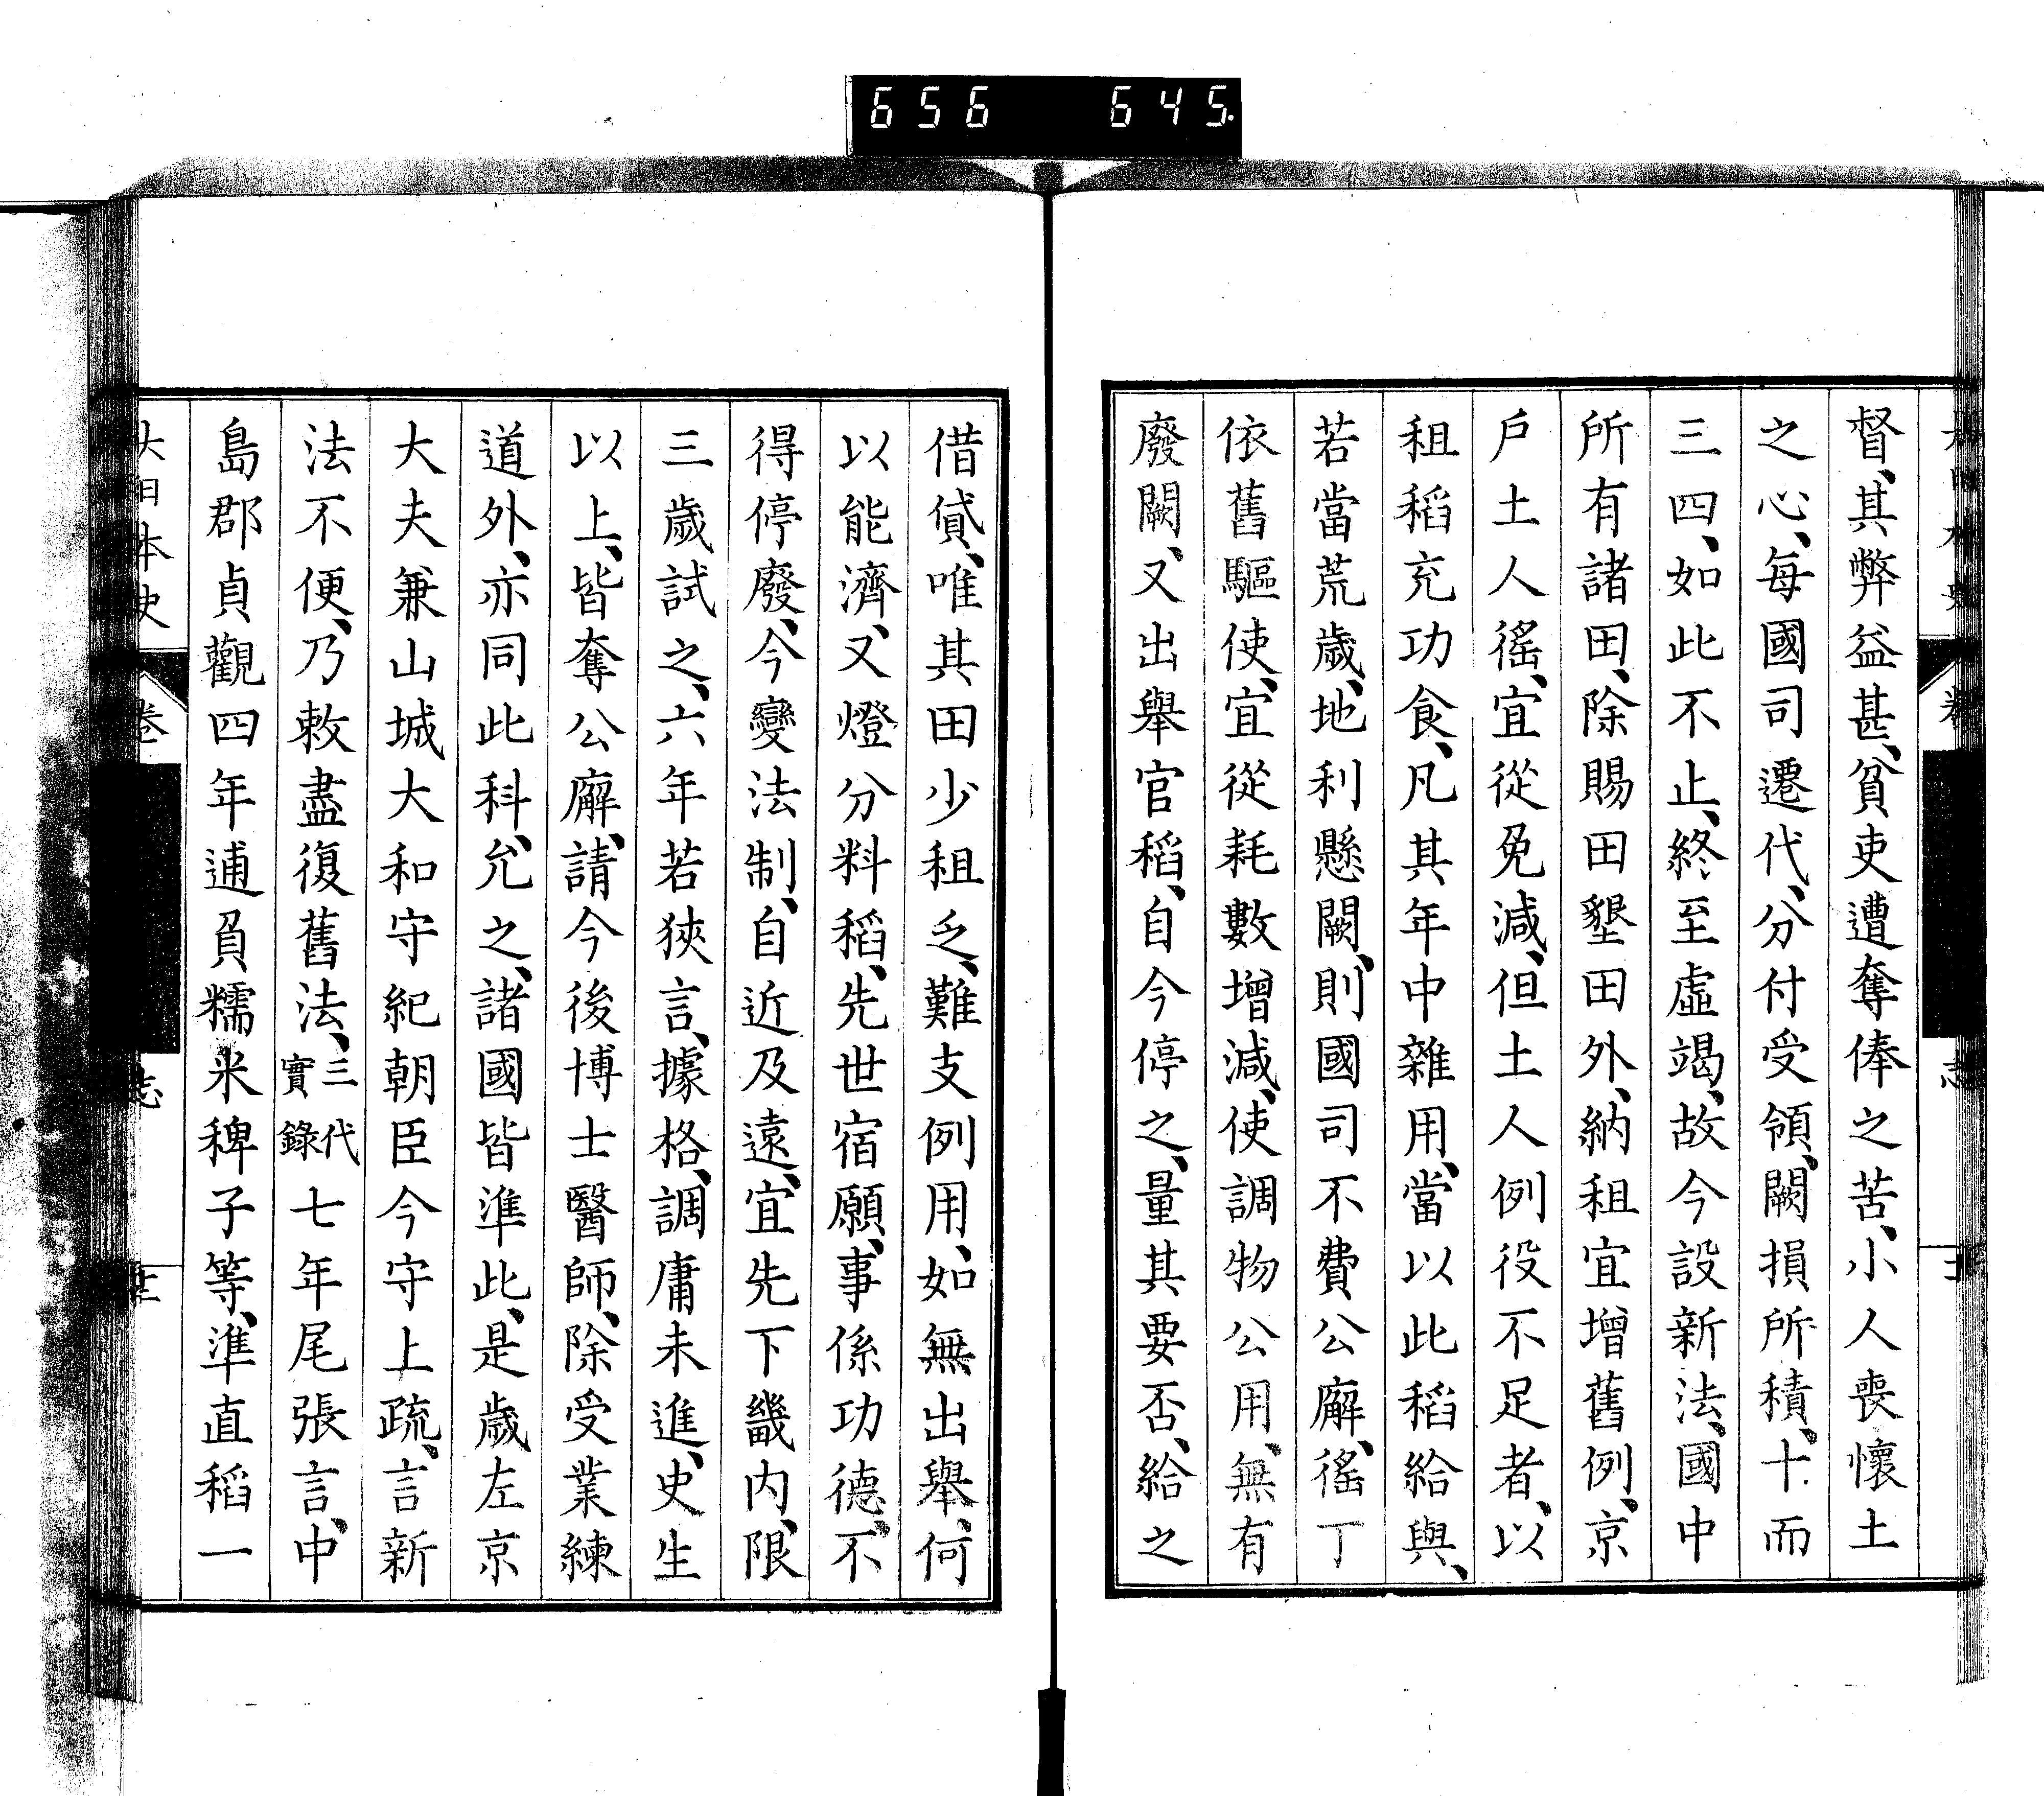 656 645.
督、其弊益甚、貧吏遭奪俸之苦、小人喪懷土
之心、每國司遷代、分付受領、闕損所積、十而
三四、如此不止、終至虛竭、故今設新法、國中
所有諸田、除賜田墾田外、納租宜增舊例、京
戶土人徭、宜從免減、但土人例役不足者、以
租稻充功食、凡其年中雜用、當以此稻給與、
若當荒歲、地利懸闕、則國司不費公廨、徭丁
依舊驅使、宜從耗數增減、使調物公用、無有
廢闕、又出舉官稻、自今停之、量其要否、給之
借貸、唯其田少租乏、難支例用、如無出舉、何
以能濟、又燈分料稻、先世宿願、事係功德、不
得停廢、今變法制、自近及遠、宜先下畿內、限
三歲試之、六年若狹言、據格、調庸未進、史生
以上、皆奪公廨、請今後博士醫師、除受業練
道外、亦同此科、允之、諸國皆準此、是歲左京
大夫兼山城大和守紀朝臣今守上疏、言新
法不便、乃敕盡復舊法、三代實錄七年尾張言、中
島郡貞觀四年逋負糯米稗子等、準直稻一
大日本史 卷 志